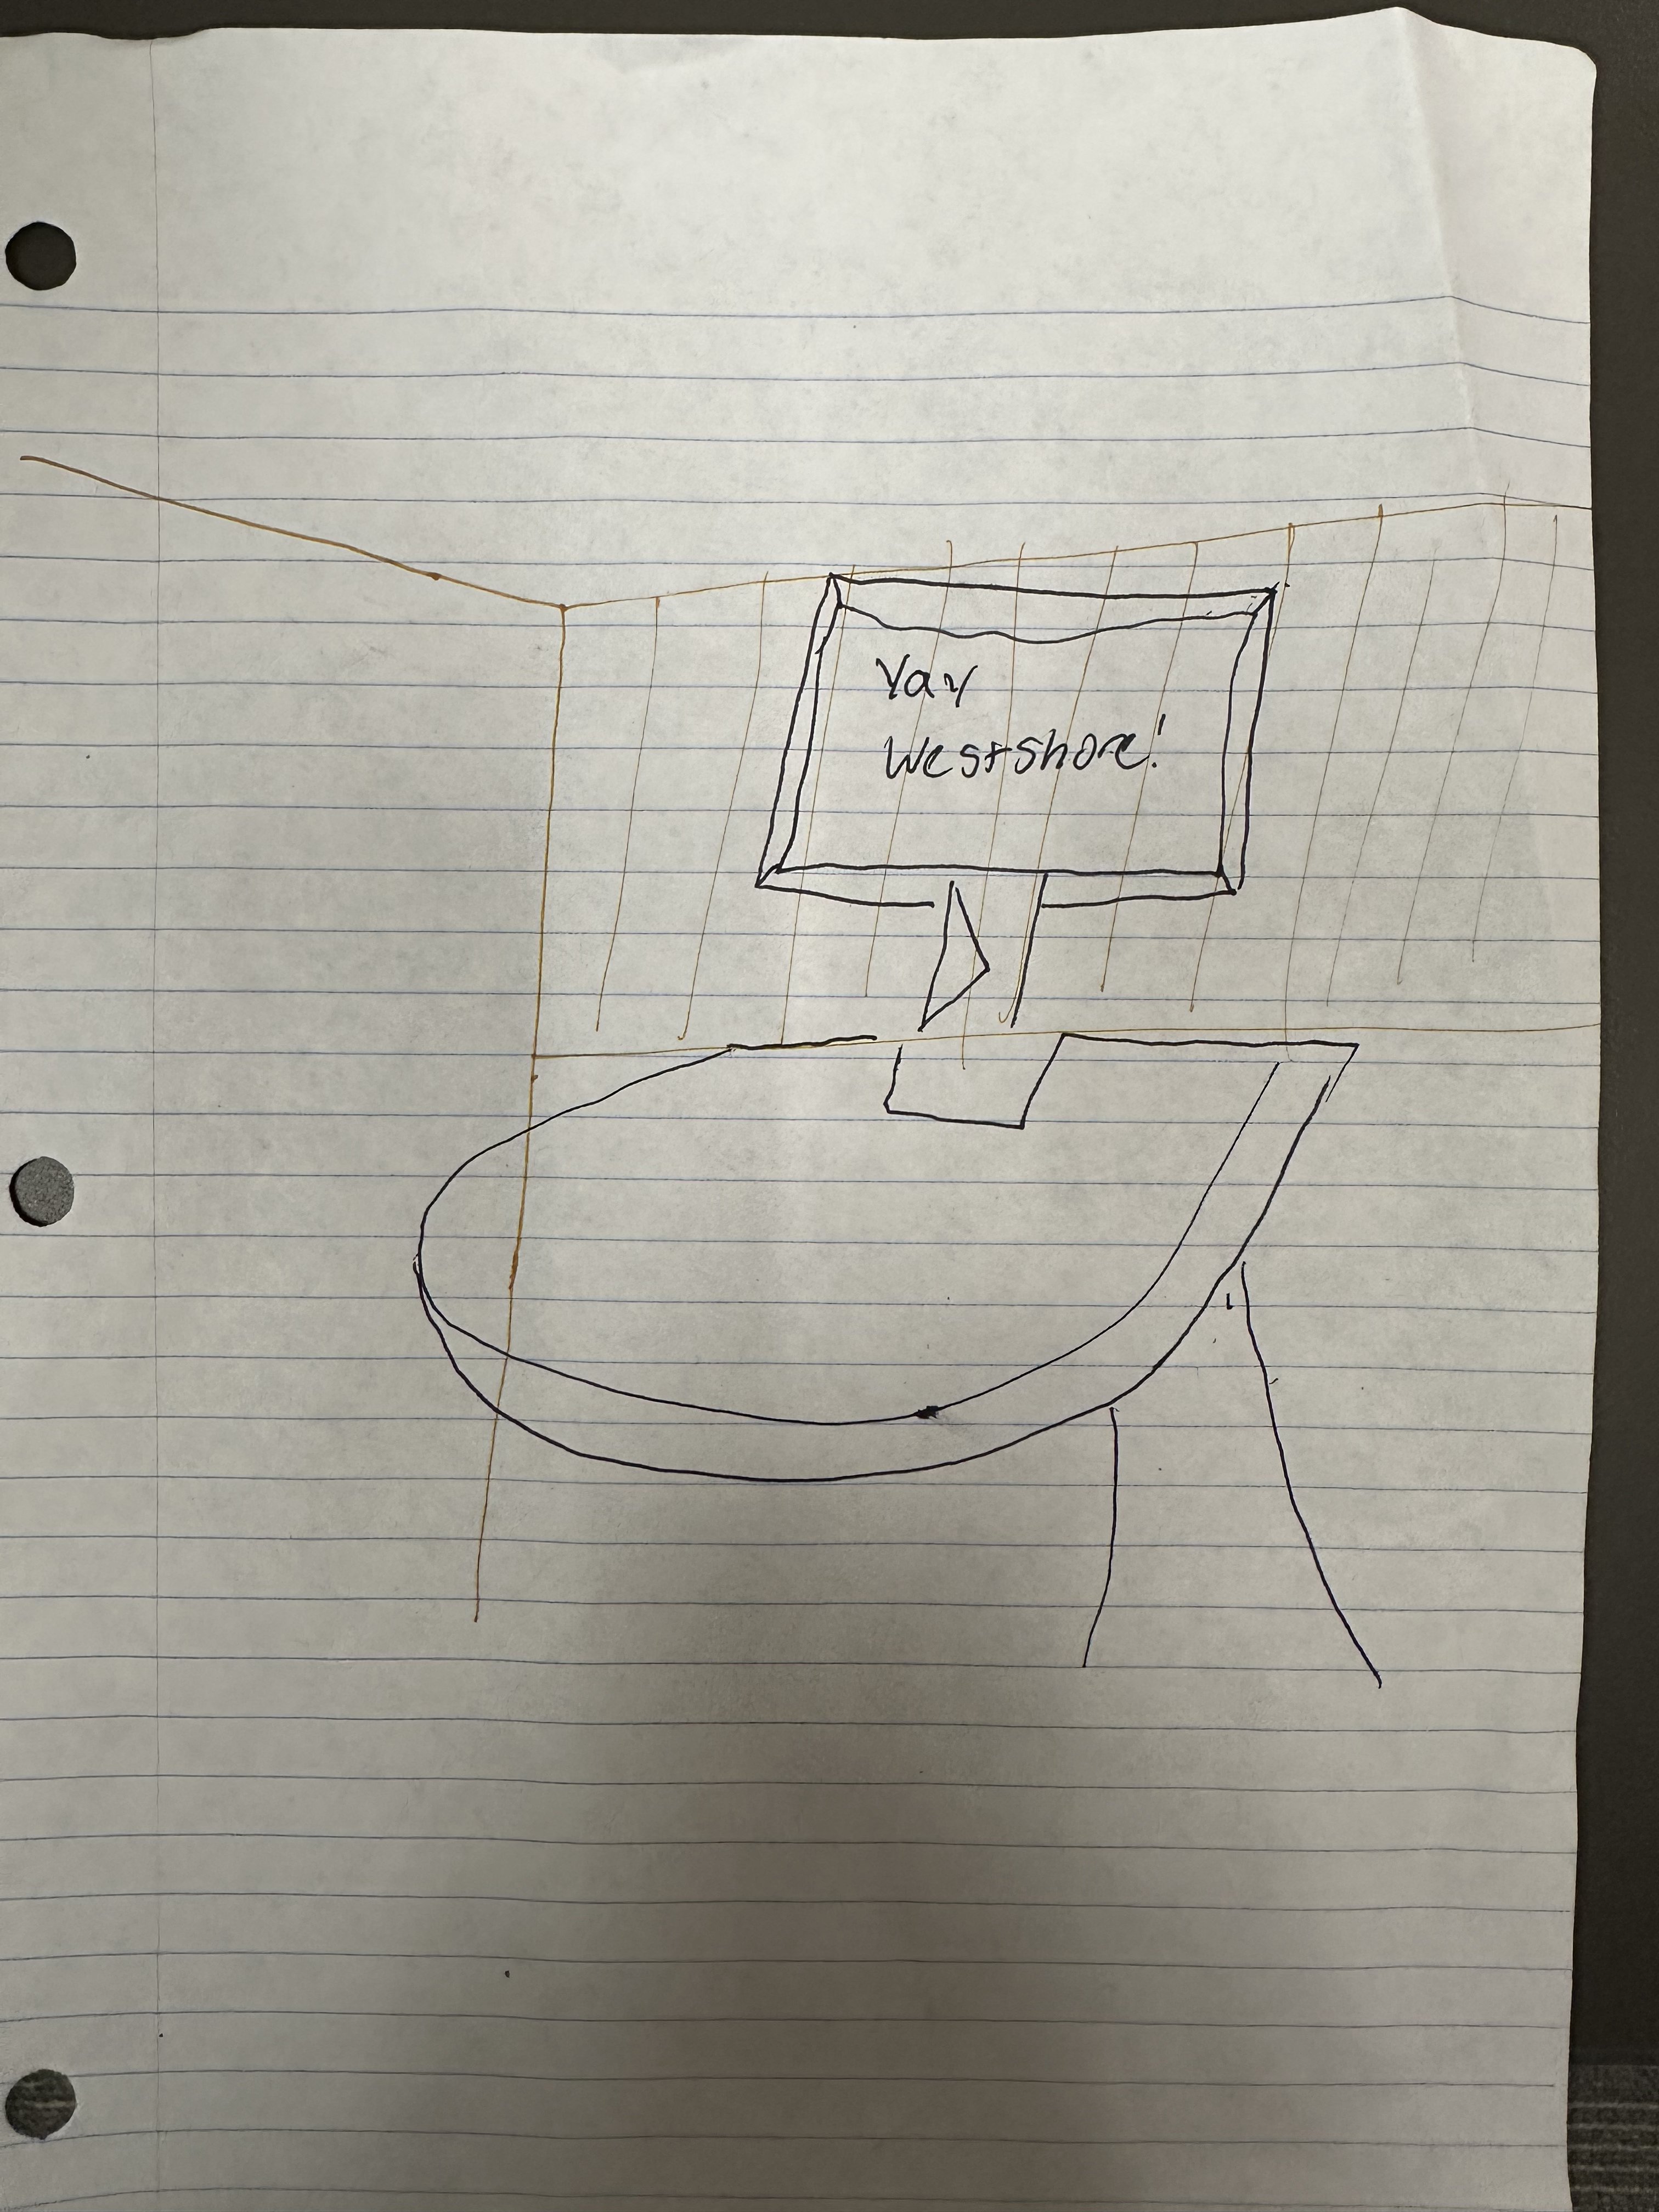 Yay
Westshore!